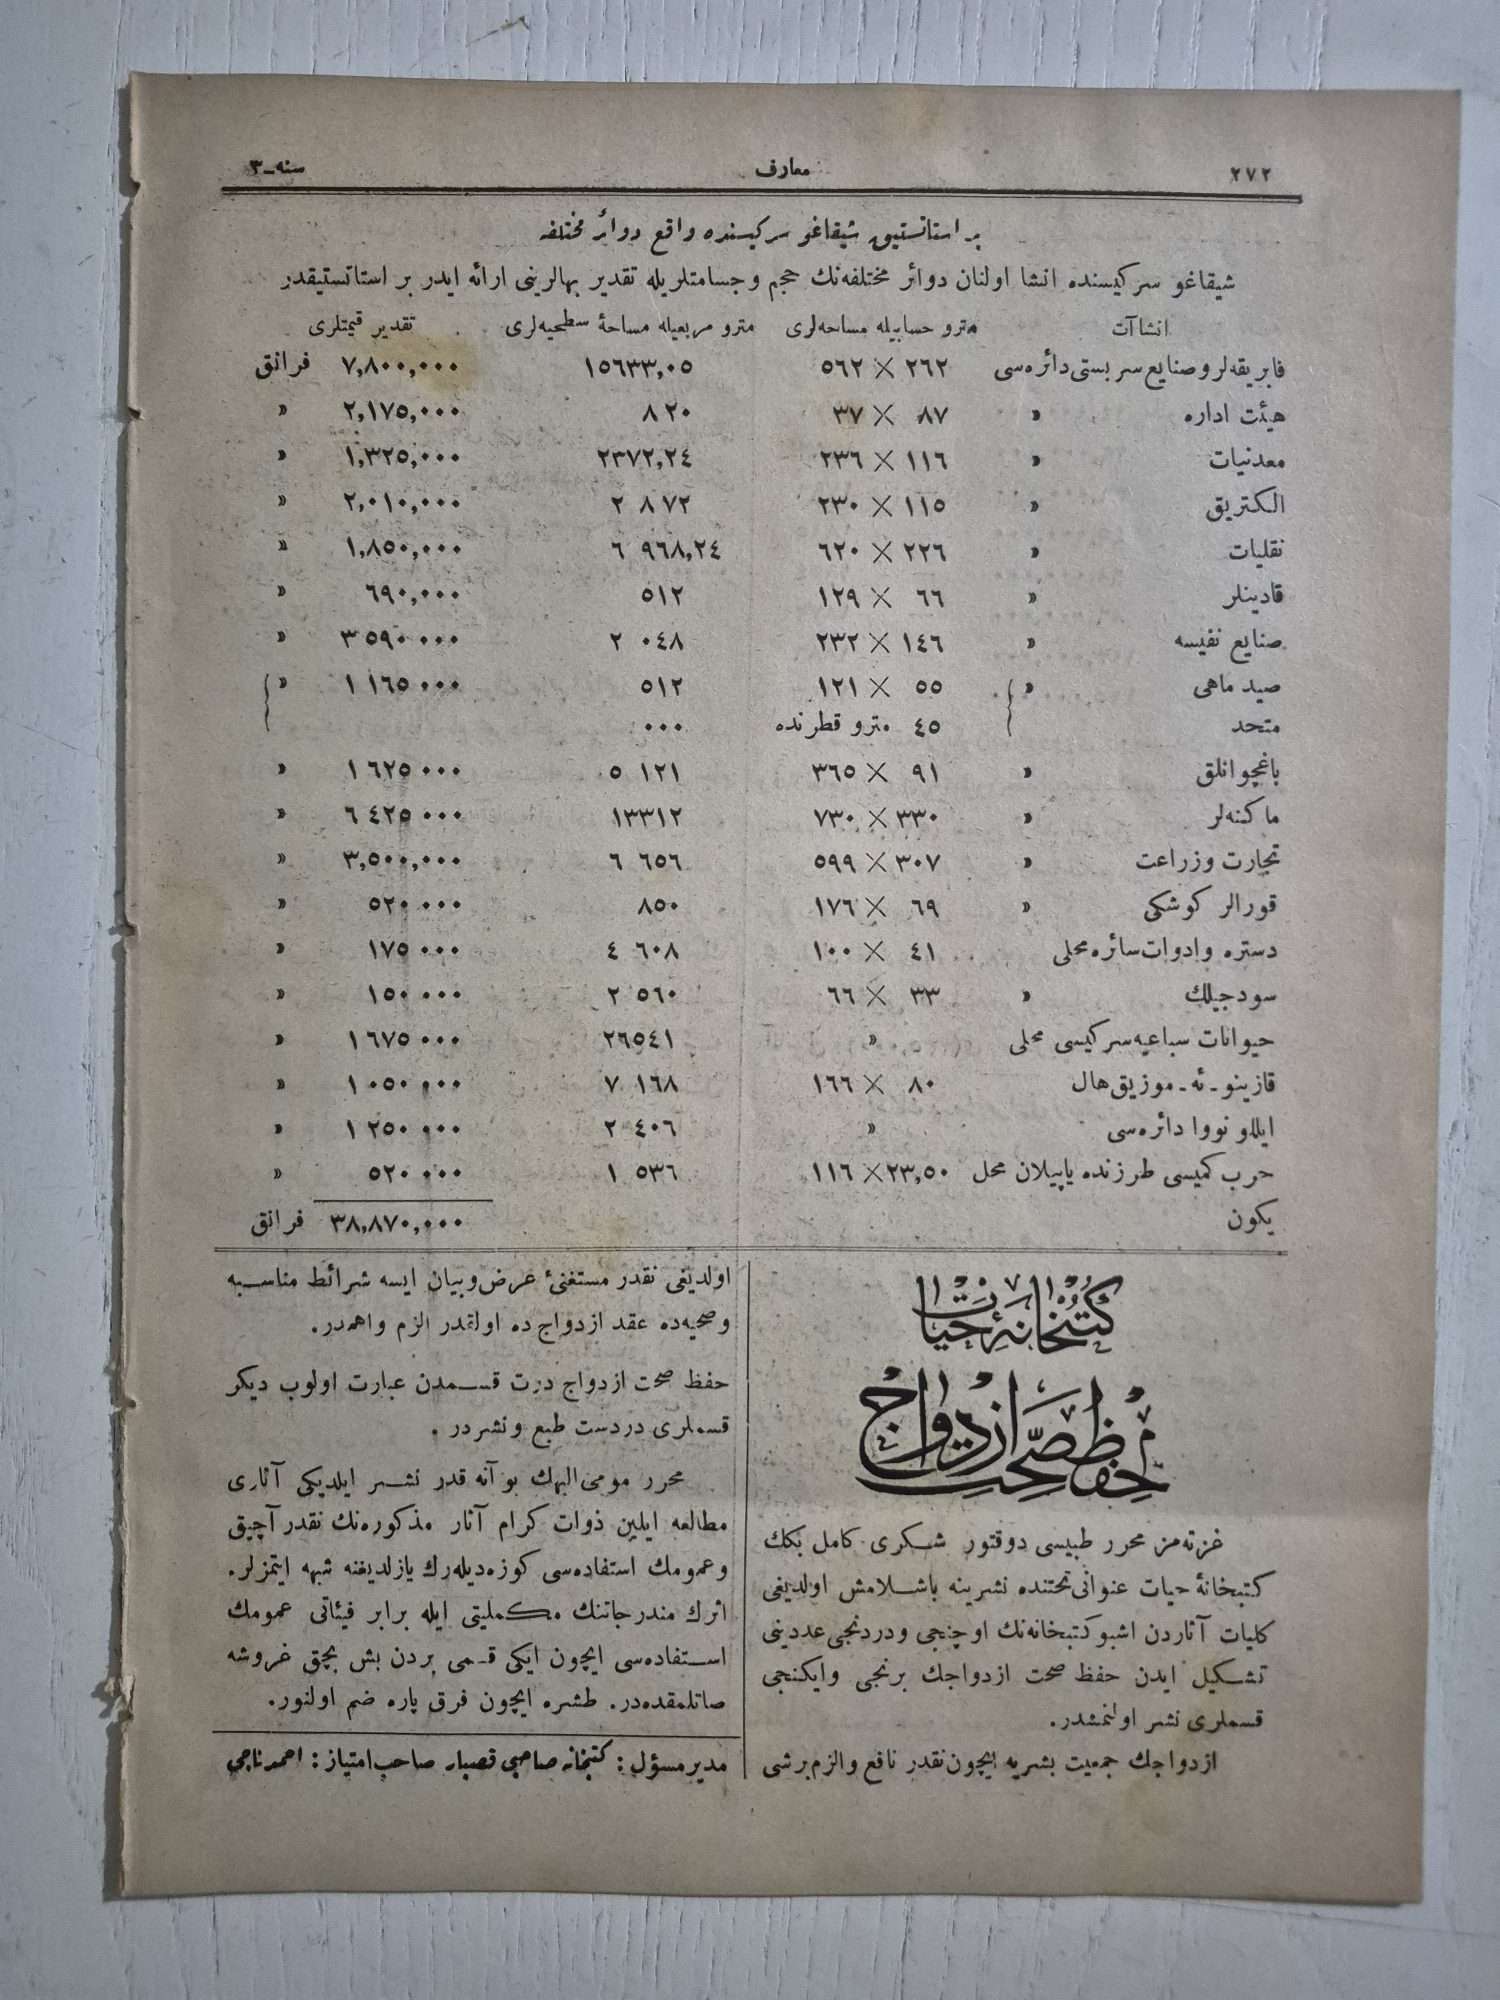 ٢٧٢ معارف سنه ـ ٣
بر استاتستيق شيقاغو سركيسنده واقع دوائر مختلفه
شيقاغو سركيسنده انشا اولنان دوائر مختلفه‌نك حجم و جسامتلريله تقدير بهالرينى ارائه ايدر بر استاتستيقدر
انشاآت مترو حسابيله مساحه‌لرى مترو مربعيله مساحۀ سطحيه‌لرى تقدير قيمتلرى
فابريقه‌لر و صنايع سربستى دائره‌سى ٢٦٢ × ٥٦٢ ١٥٦٣٣,٠٥ ٧,٨٠٠,٠٠٠ فرانق
هيئت اداره » ٨٧ × ٣٧ ٨٢٠ ٢,١٧٥,٠٠٠ »
معدنيات » ١١٦ × ٢٣٦ ٢٣٧٢,٢٤ ١,٣٢٥,٠٠٠ »
الكتريق » ١١٥ × ٢٣٠ ٢ ٨٧٢ ٢,٠١٠,٠٠٠ »
نقليات » ٢٢٦ × ٦٢٠ ٦ ٩٦٨,٢٤ ١,٨٥٠,٠٠٠ »
قادينلر » ٦٦ × ١٢٩ ٥١٢ ٦٩٠,٠٠٠ »
صنايع نفيسه » ١٤٦ × ٢٣٢ ٢ ٠٤٨ ٣ ٥٩٠ ٠٠٠ »
صيد ماهى » ٥٥ × ١٢١ ٥١٢ ١ ١٦٥ ٠٠٠ »
متحد ٤٥ مترو قطرنده ٠٠٠
باغچوانلق » ٩١ × ٣٦٥ ٥ ١٢١ ١ ٦٢٥ ٠٠٠ »
ماكنه‌لر » ٣٣٠ × ٧٣٠ ١٣٣١٢ ٦ ٤٢٥ ٠٠٠ »
تجارت و زراعت » ٣٠٧ × ٥٩٩ ٦ ٦٥٦ ٣,٥٠٠,٠٠٠ »
قورالر كوشكى » ٦٩ × ١٧٦ ٨٥٠ ٥٢٠ ٠٠٠ »
دستره و ادوات سائره محلى ٤١ × ١٠٠ ٤ ٦٠٨ ١٧٥ ٠٠٠ »
سودجيلك » ٣٣ × ٦٦ ٢ ٥٦٠ ١٥٠ ٠٠٠ »
حيوانات سباعيه سركيسى محلى » ٢٦٥٤١ ١ ٦٧٥ ٠٠٠ »
قازينو ـ ئه ـ موزيق هال ٨٠ × ١٦٦ ٧ ١٦٨ ١ ٠٥٠ ٠٠٠ »
ايللو نووا دائره‌سى » ٢ ٤٠٦ ١ ٢٥٠ ٠٠٠ »
حرب كميسى طرزنده ياپيلان محل ٢٣,٥٠ × ١١٦ ١ ٥٣٦ ٥٢٠ ٠٠٠ »
يكون ٣٨,٨٧٠,٠٠٠ فرانق
كتبخانۀ حيات
حفظ صحت ازدواج
غزته‌مز محرر طبيسى دوقتور شكرى كامل بكك
كتبخانۀ حيات عنوانى تحتنده نشرينه باشلامش اولديغى
كليات آثاردن اشبو كتبخانه‌نك اوچنجى و دردنجى عددينى
تشكيل ايدن حفظ صحت ازدواجك برنجى و ايكنجى
قسملرى نشر اولنمشدر.
ازدواجك جمعيت بشريه ايچون نقدر نافع و الزم بر شى
اولديغى نقدر مستغنئ عرض و بيان ايسه شرائط مناسبه
و صحيه‌ده عقد ازدواج ده اولقدر الزم و اهمدر.
حفظ صحت ازدواج درت قسمدن عبارت اولوب ديكر
قسملرى دردست طبع و نشردر .
محرر مومى اليهك بو آنه قدر نشر ايلديكى آثارى
مطالعه ايلين ذوات كرام آثار مذكوره‌نك نقدر آچيق
و عمومك استفاده‌سى كوزه‌ديله‌رك يازلديغنه شبهه ايتمزلر.
اثرك مندرجاتنك مكمليتى ايله برابر فيئاتى عمومك
استفاده‌سى ايچون ايكى قسمى بردن بش بچق غروشه
صاتلمقده‌در. طشره ايچون فرق پاره ضم اولنور.
مدير مسؤل : كتبخانه صاحبى قصبار صاحب امتياز : احمد ناجى